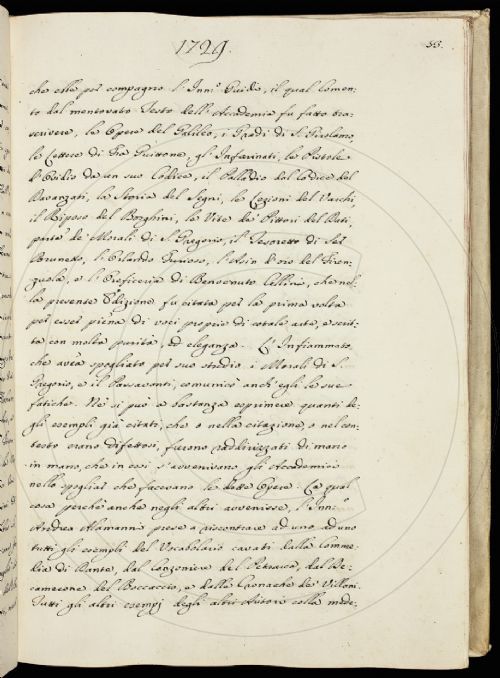 1729.
53.
che ebbe per compagno l'Inn.º Guidi, il qual comen-
to dal mentovato Testo dell'Accademia fu fatto tra-
scrivere, le Opere del Galileo, i Gradi di S. Girolamo,
le Lettere di Fra Guittone, gl'Infarinati, le Pistole
d'Ovidio da un suo Codice, il Palladio dal Codice del
Davanzati, la Storia del Segni, le Lezioni del Varchi,
il Riposo del Borghini, le Vite de' Pittori del Buti,
parte de' Morali di S. Gregorio, il Tesoretto di Ser
Brunetto, l'Orlando Furioso, l'Asin d'oro del Firen-
zuola, e l'Oreficeria di Benvenuto Cellini, che nel-
la presente Edizione fu citata per la prima volta
per esser piena di voci proprie di totale arte, e scrit-
ta con molta purità, ed eleganza. L'Infiammato,
che avea spogliato per suo studio i Morali di S.
Gregorio, e il Passavanti, comunicò anch'egli le sue
fatiche. Nè si può a bastanza esprimere quanti de-
gli esempli già citati, che o nella citazione, o nel con-
testo erano difettosi, furono raddirizzati di mano
in mano, che in essi s'avvenivano gli Accademici
nello spogliar che facevano le dette Opere. La qual
cosa perchè anche negli altri avvenisse, l'Inn.º
Andrea Alamanni prese a riscontrare ad uno ad uno
tutti gli esempli del Vocabolario cavati dalla Comme-
dia di Dante, dal Canzoniere del Petrarca, dal De-
camerone del Boccaccio, e dalle Cronache de' Villani.
Tutti gli altri esempj degli altri Autori colla mede-